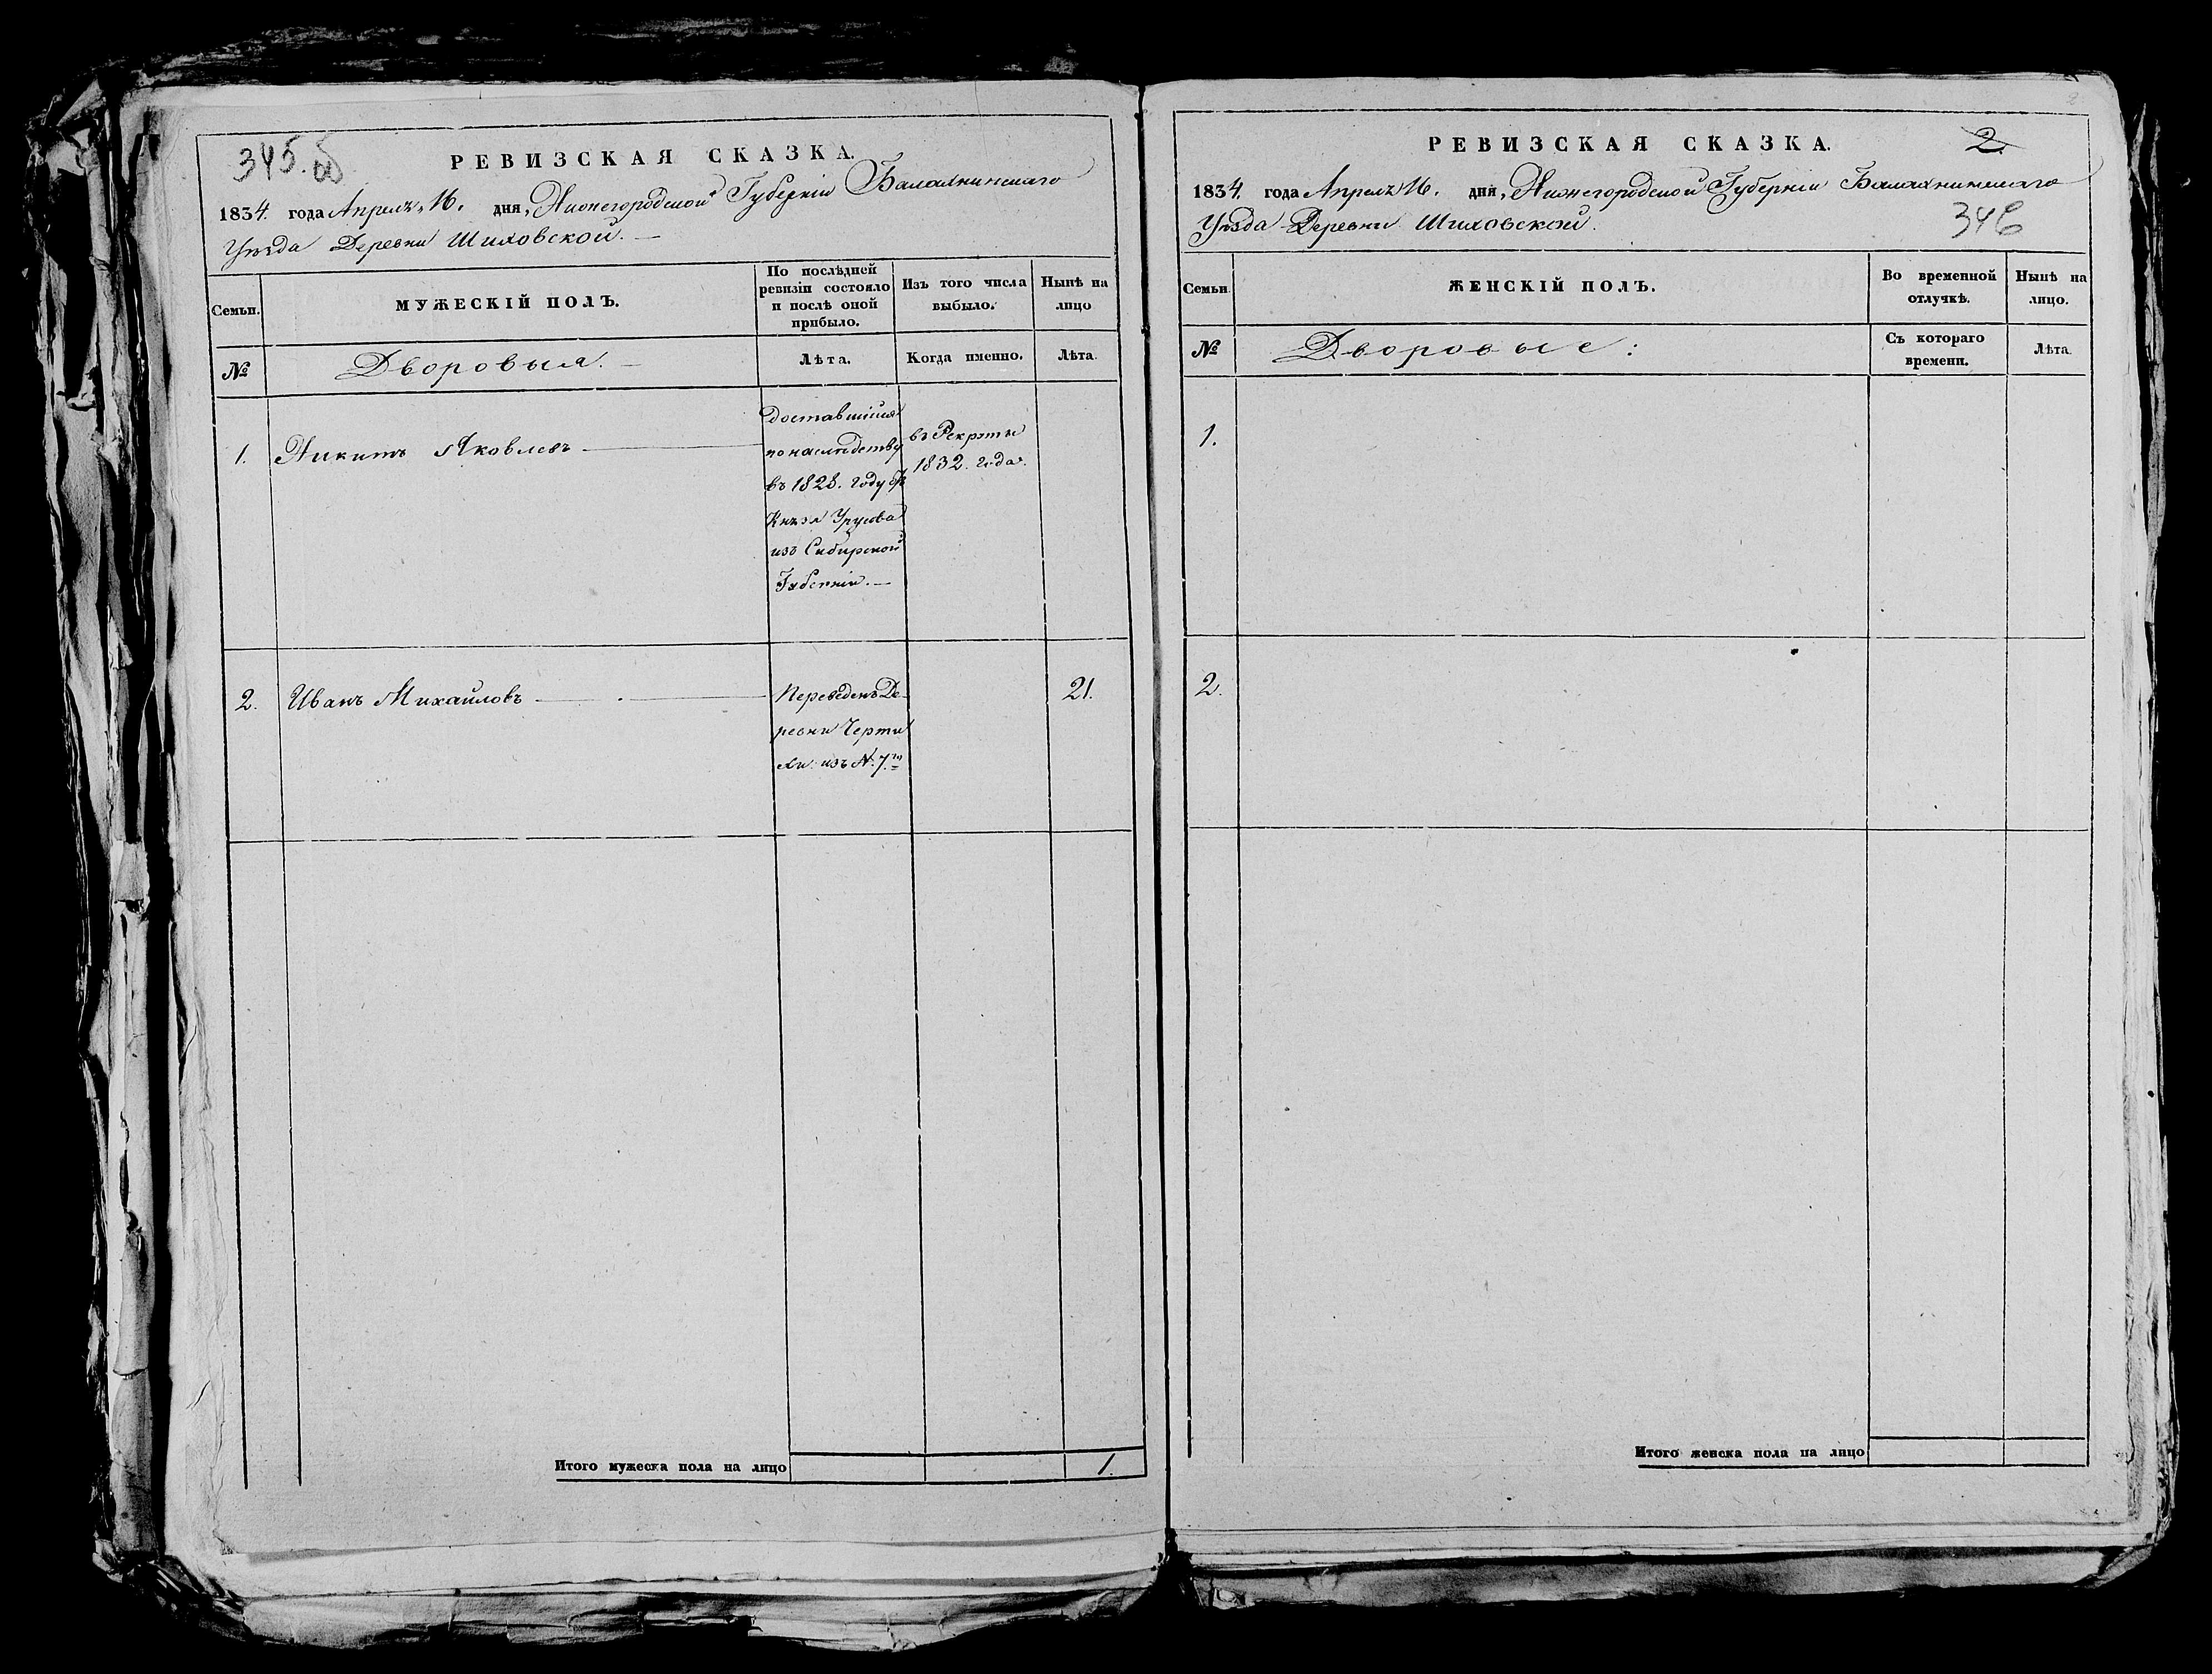 345.об
РЕВИЗСКАЯ СКАЗКА.
1834. года Апреля, 16. дня, Нижегородской Губернiи Балахнинскаго
Уѣзда Деревни Шиховской.
Семьи.
МУЖЕСКIЙ ПОЛЪ.
По послѣдней
ревизiи состояло
и послѣ оной
прибыло.
Изъ того числа
выбыло.
Нынѣ на
лицо
№
Дворовыя.
Лѣта.
Когда именно.
Лѣта.
1. Никита Яковлевъ
доставшiйся
по наследству
въ 1828. году отъ
Князя Урусова
изъ Сибирской
Губернiи.
въ Рекруты
1832. года.
2. Иванъ Михайловъ
Переведенъ Де-
ревни Черти
хи изъ №. 7.го
21.
Итого мужеска пола на лицо
1.
РЕВИЗСКАЯ СКАЗКА.
2.
1834. года Апреля 16. дня, Нижегородской Губернiи Балахнинскаго
Уѣзда Деревни Шиховской.
346
Семьи.
ЖЕНСКIЙ ПОЛЪ.
Во временной
отлучкѣ.
Нынѣ на
лицо.
№
Дворовые:
Съ котораго
времени.
Лѣта.
1.
2.
Итого женска пола на лицо